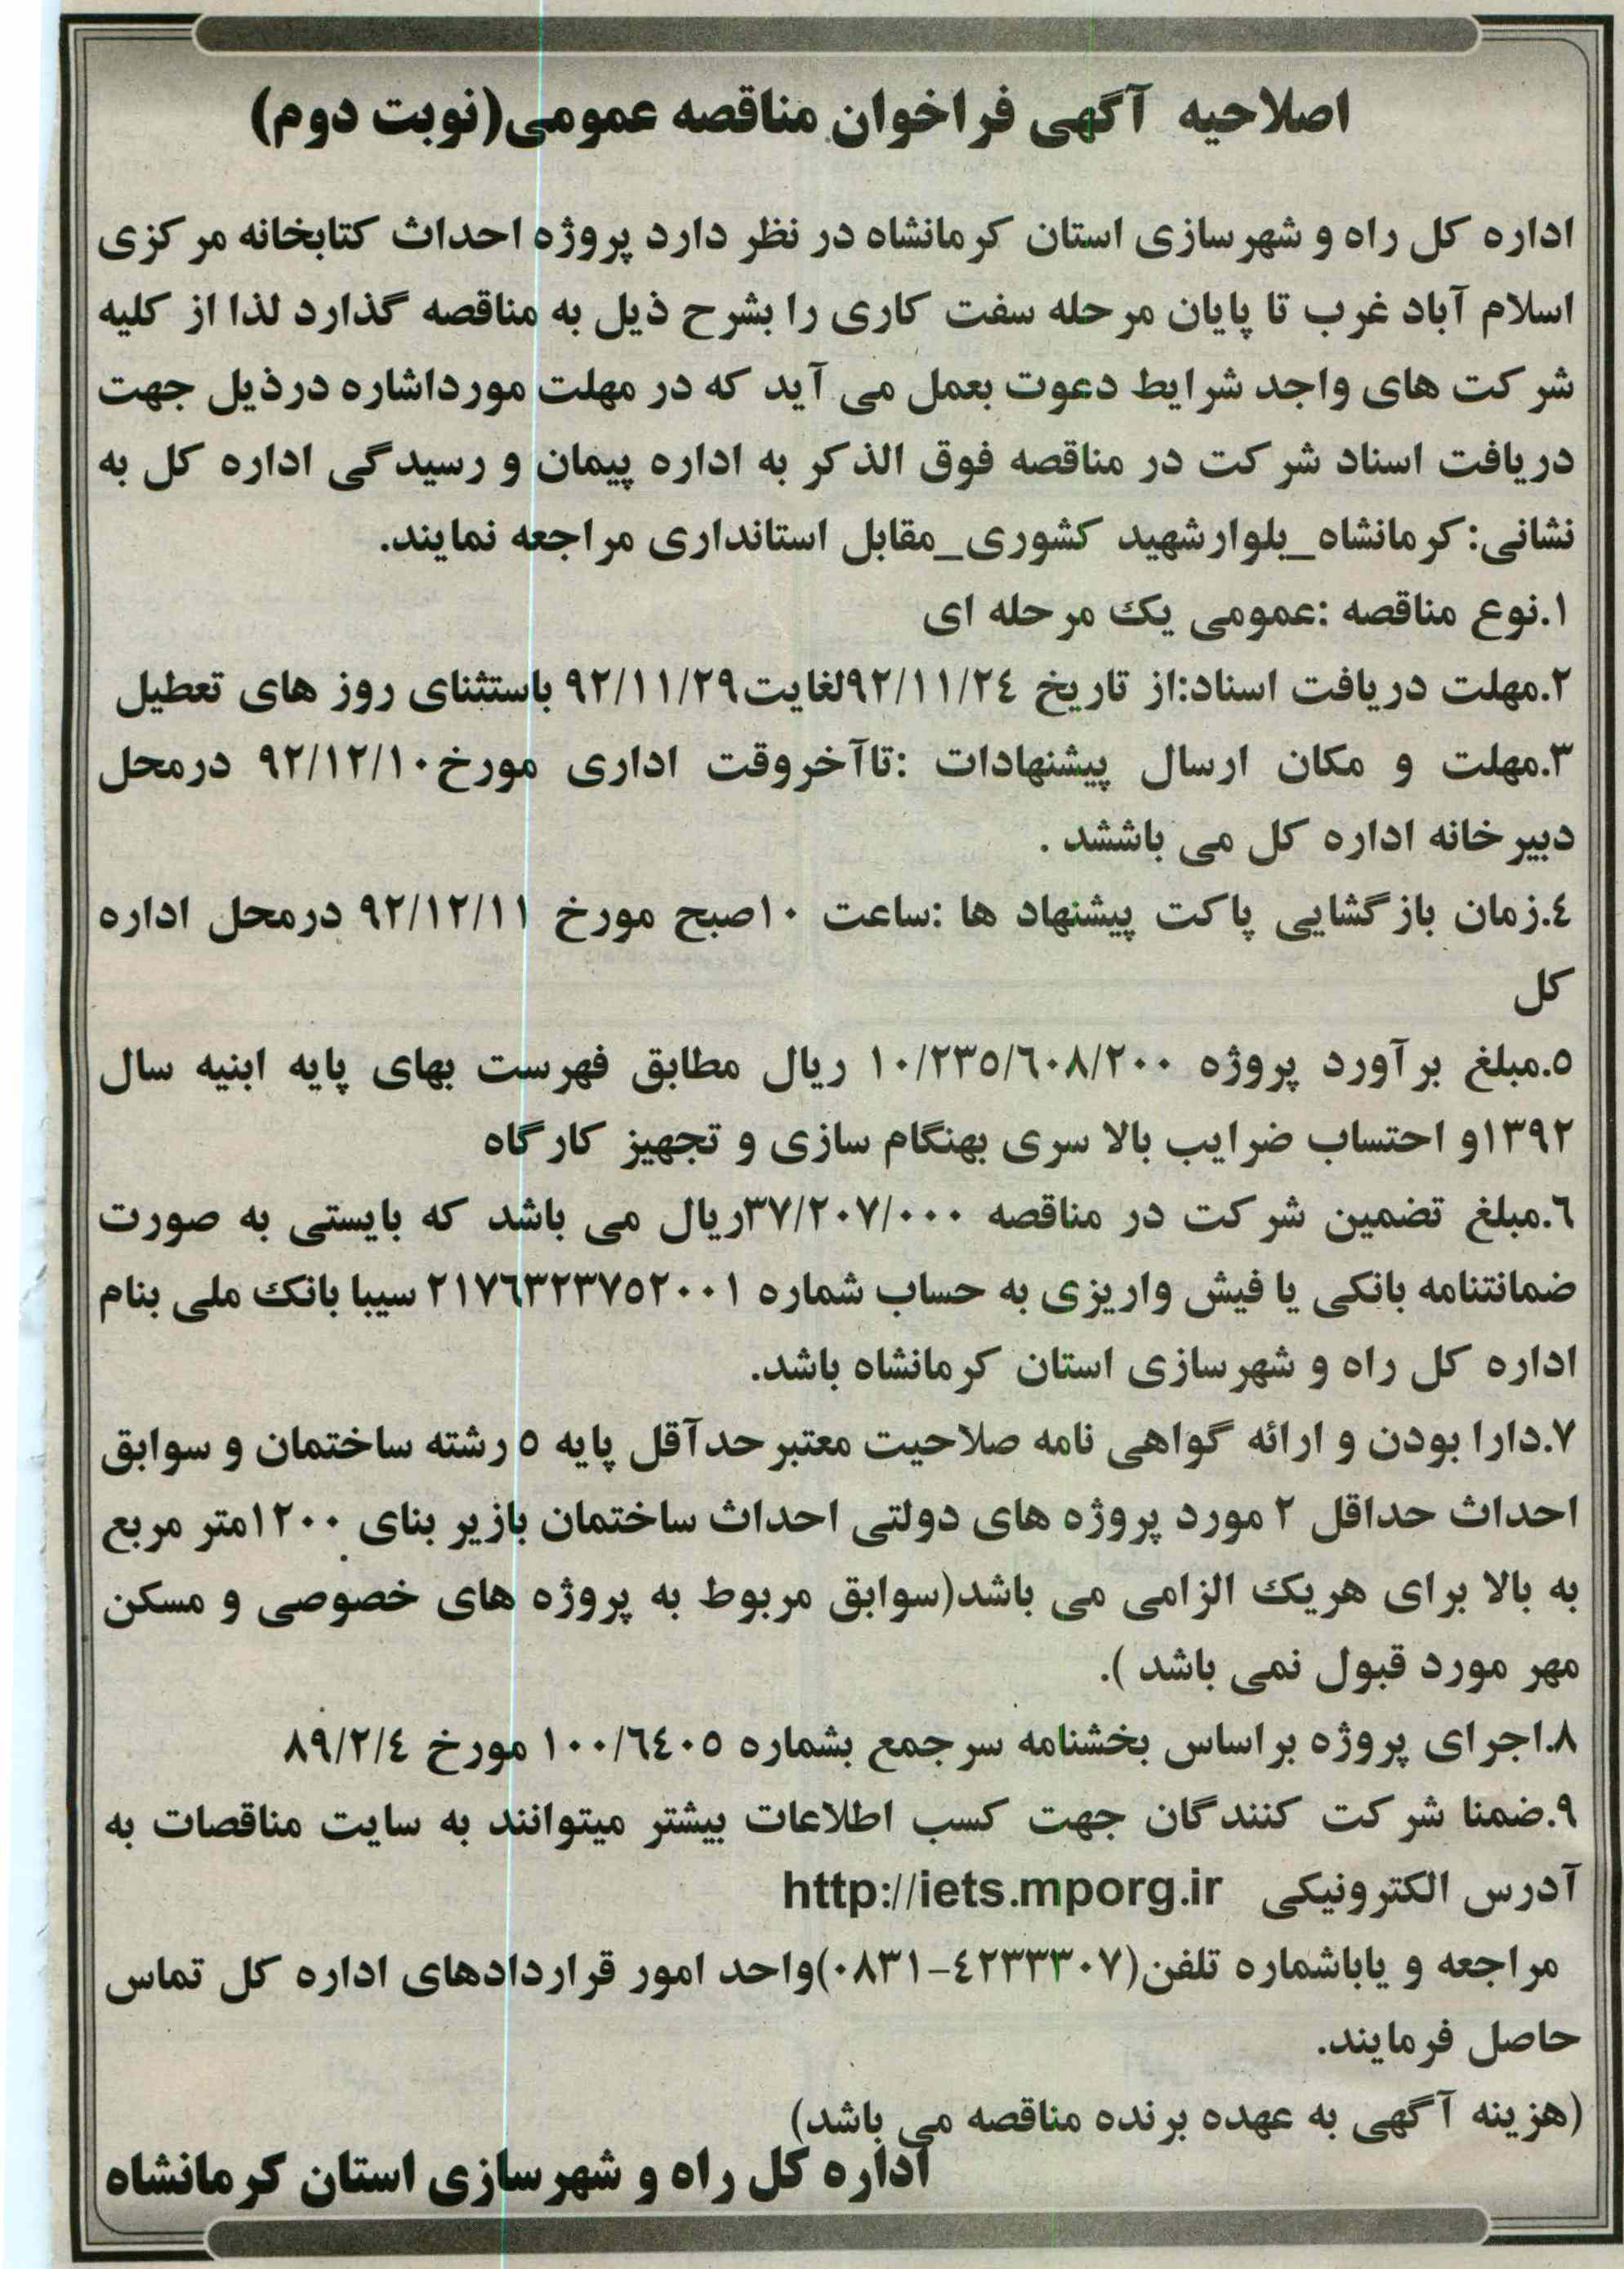 اصلاحیه آگهی فراخوان مناقصه عمومی(نوبت دوم)
اداره کل راه و شهرسازی استان کرمانشاه در نظر دارد پروژه احداث کتابخانه مرکزی
اسلام آباد غرب تا پایان مرحله سفت کاری را بشرح ذیل به مناقصه گذارد لذا از کلیه
شرکت های واجد شرایط دعوت بعمل می آید که در مهلت مورداشاره درذیل جهت
دریافت اسناد شرکت در مناقصه فوق الذکر به اداره پیمان و رسیدگی اداره کل به
نشانی:کرمانشاه_بلوارشهید کشوری_مقابل استانداری مراجعه نمایند.
۱.نوع مناقصه :عمومی یک مرحله ای
۲.مهلت دریافت اسناد:از تاریخ ۹۲/۱۱/۲۴لغایت۹۲/۱۱/۲۹ باستثنای روز های تعطیل
۳.مهلت و مکان ارسال پیشنهادات :تاآخروقت اداری مورخ۹۲/۱۲/۱۰ درمحل
دبیرخانه اداره کل می باششد .
۴.زمان بازگشایی پاکت پیشنهاد ها :ساعت ۱۰صبح مورخ ۹۲/۱۲/۱۱ درمحل اداره
کل
۵.مبلغ برآورد پروژه ۱۰/۲۳۵/۶۰۸/۲۰۰ ریال مطابق فهرست بهای پایه ابنیه سال
۱۳۹۲و احتساب ضرایب بالا سری بهنگام سازی و تجهیز کارگاه
۶.مبلغ تضمین شرکت در مناقصه ۳۷/۲۰۷/۰۰۰ریال می باشد که بایستی به صورت
ضمانتنامه بانکی یا فیش واریزی به حساب شماره ۲۱۷۶۳۲۳۷۵۲۰۰۱ سیبا بانک ملی بنام
اداره کل راه و شهرسازی استان کرمانشاه باشد.
۷.دارا بودن و ارائه گواهی نامه صلاحیت معتبر حدآقل پایه ۵ رشته ساختمان و سوابق
احداث حداقل ۲ مورد پروژه های دولتی احداث ساختمان بازیر بنای ۱۲۰۰متر مربع
به بالا برای هریک الزامی می باشد(سوابق مربوط به پروژه های خصوصی و مسکن
مهر مورد قبول نمی باشد ).
۸.اجرای پروژه براساس بخشنامه سرجمع بشماره ۱۰۰/۶۴۰۵ مورخ ۸۹/۲/۴
۹.ضمنا شرکت کنندگان جهت کسب اطلاعات بیشتر میتوانند به سایت مناقصات به
آدرس الکترونیکی http://iets.mporg.ir
مراجعه و یاباشماره تلفن(۴۲۳۳۳۰۷-۰۸۳۱)واحد امور قراردادهای اداره کل تماس
حاصل فرمایند.
(هزینه آگهی به عهده برنده مناقصه می باشد)
اداره کل راه و شهرسازی استان کرمانشاه